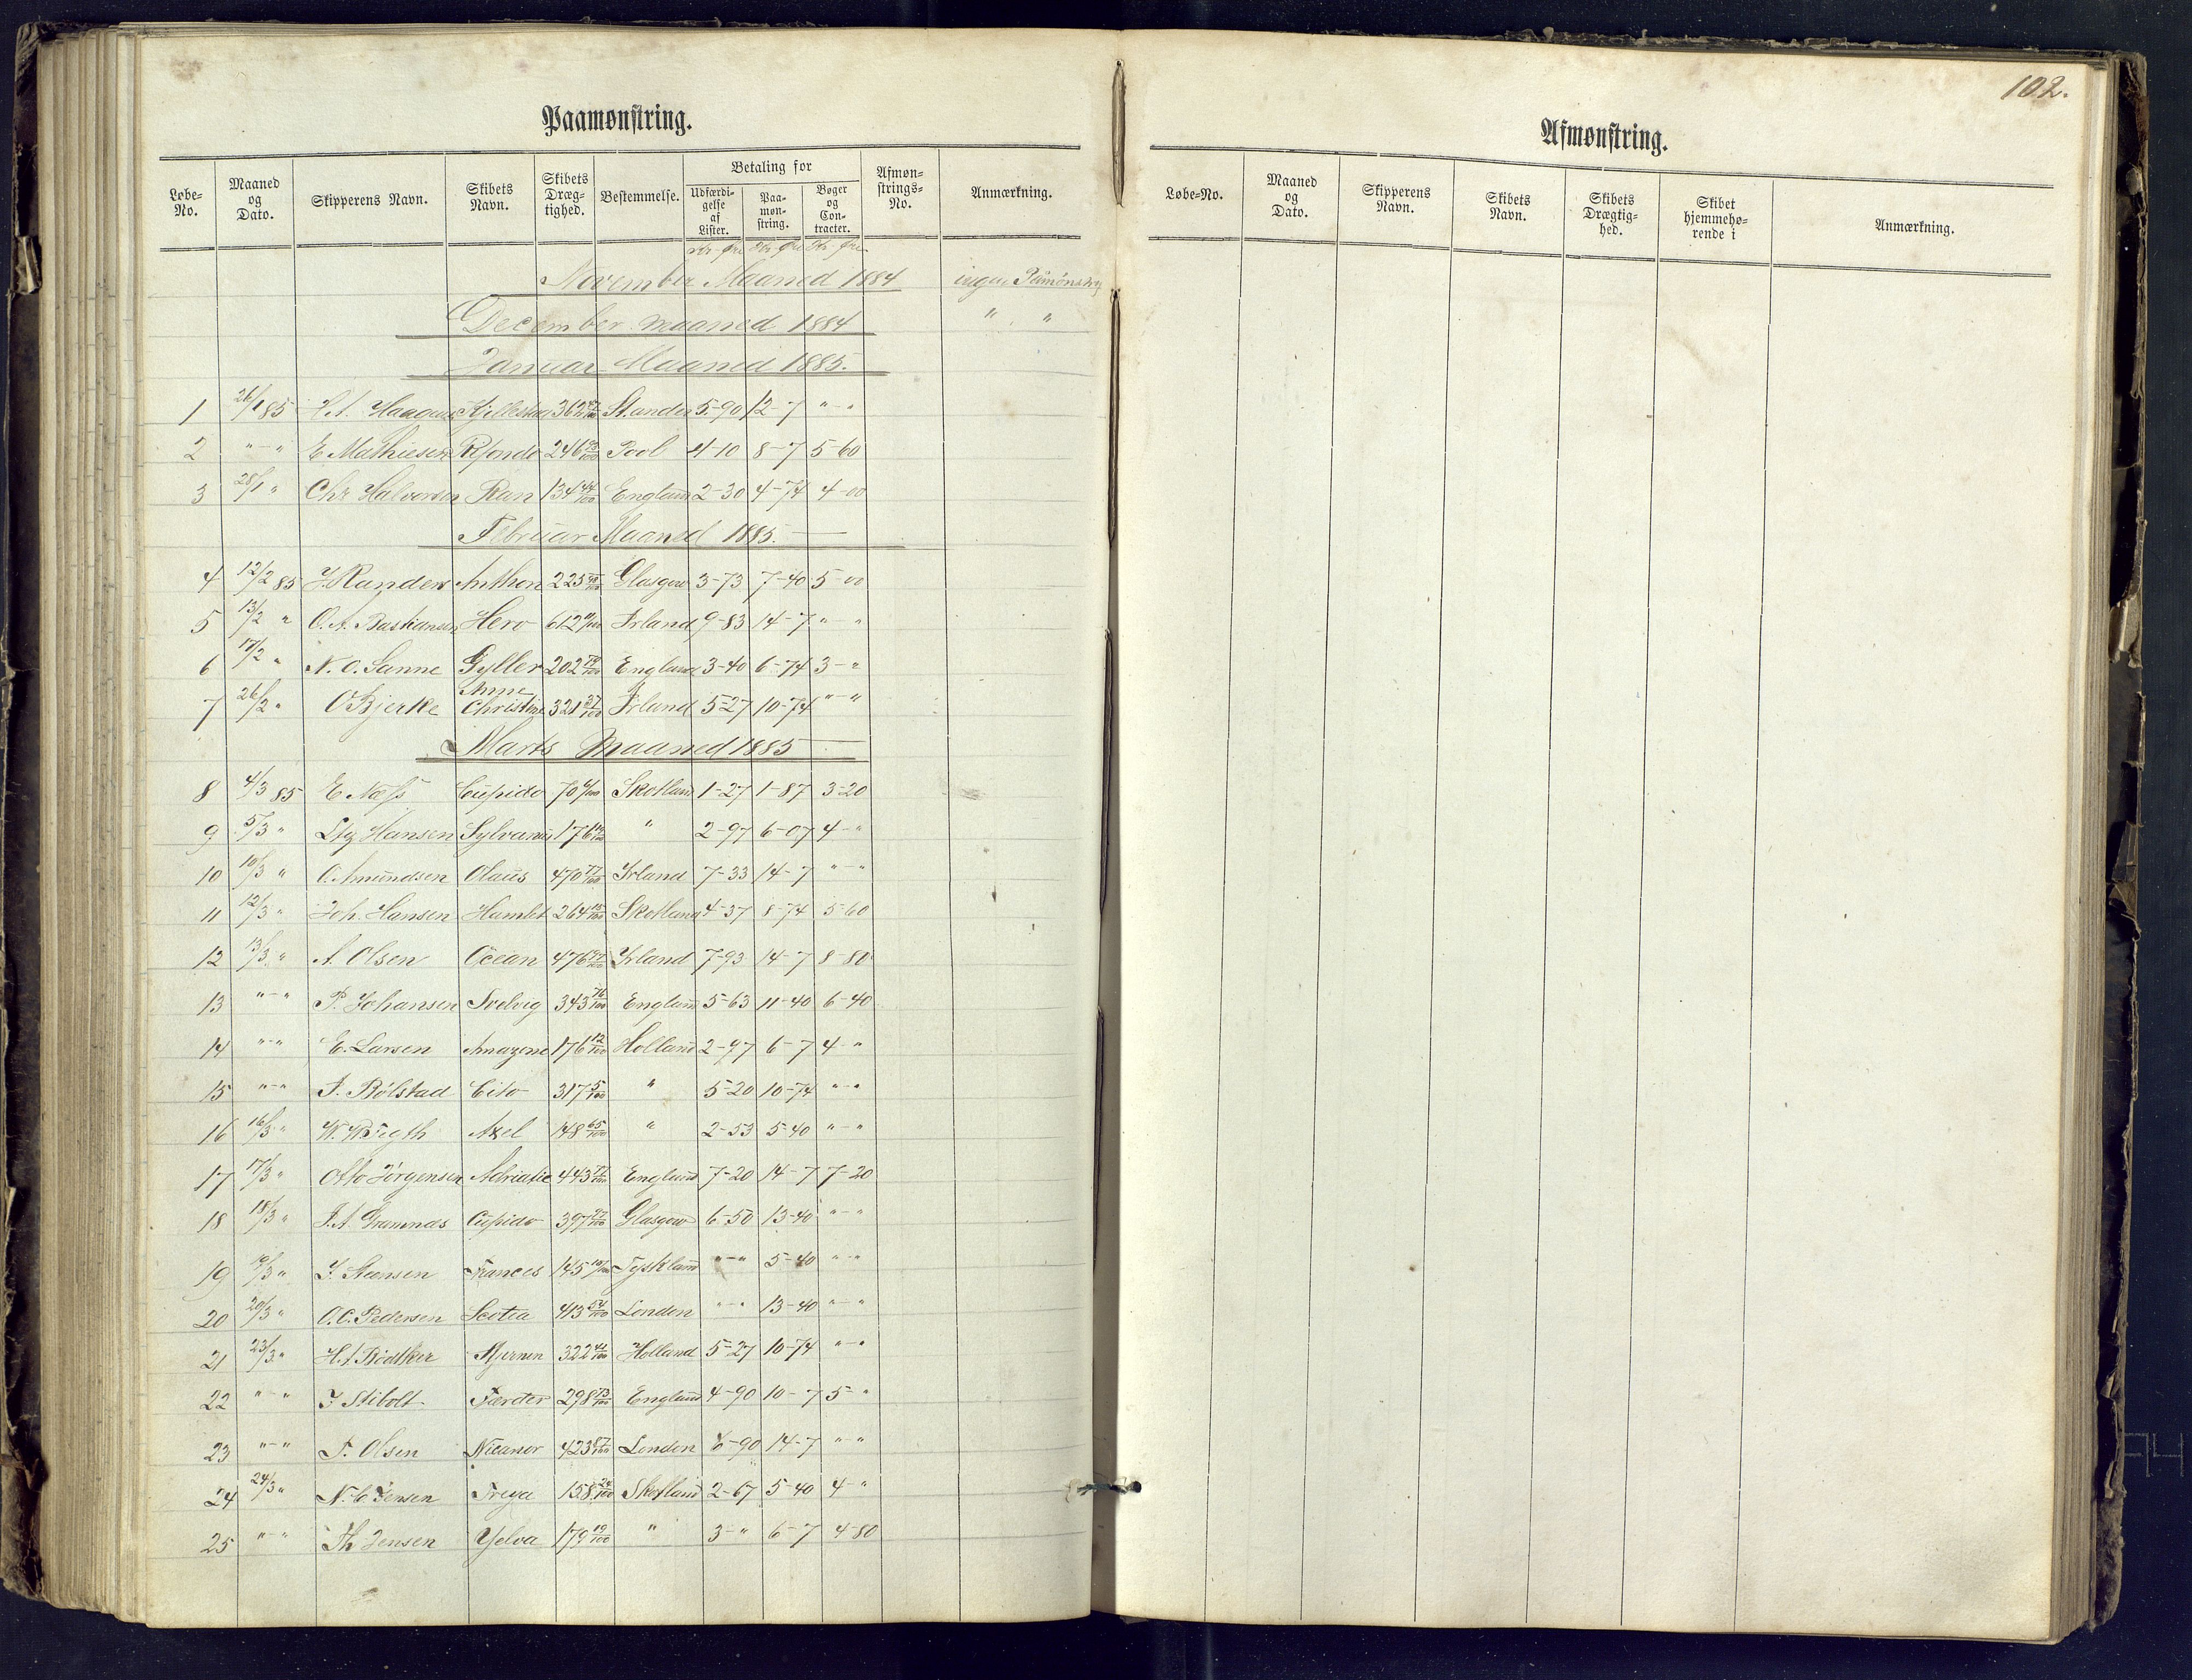 Paamønstring.
Løbe-No. Maaned og Dato. Skipperens Navn. Skibets Navn. Skibets Dræg-tighed. Bestemmelse. Betaling for Afmøn-strings-No. Anmærkning.
Udfærdi-gelse af Lister. Paa-møn-string. Bøger og Con-tracter.
Kr Øre Kr Øre Kr Øre
November Maaned 1884 ingen Påmønstring
December maaned 1884 " "
Januar Maaned 1885.
1 26/1 85 H.A. St.ander 5-90 12-7 " "
2 " - " E Mathiesen 246 Pool 4-10 8-7 5-60
3 28/1 " Chr Halvorsen Ran 134 44/100 England 2-30 4-74 4-00
Februar Maaned 1885.
4 12/2 85 J. Randers Anthon 225 Glasgow 3-73 7-40 5-00
5 13/2 " O.A. Bastiansen Hero 612 Irland 9-83 14-7 " "
6 17/2 " N.O. Sanne Gyller 202 England 3-40 6-74 3-"
7 26/2 " O Bjerke Anne Christine 321 37/100 Irland 5-27 10-74 "-"
Marts Maaned 1885
8 4/3 85 E Næss Cupido 70 Skotland 1-27 1-87 3-20
9 5/3 " Hansen Sylvanus 176 " 2-97 6-07 4-"
10 10/3 " O. Amundsen Olaus 470 77/100 Irland 7-33 14-7 "-"
11 12/3 " Joh. Hansen Hamlet 264 Skotland 4-37 8-74 5-60
12 13/3 " A. Olsen Ocean 476 Irland 7-93 14-7 8-80
13 "-" P. Johansen Svelvig 343 76/100 England 5-63 11-40 6-40
14 "-" E. Larsen Amazone 176 12/100 Holland 2-97 6-7 4-"
15 "-" Bølstad Cito 317 5/100 " 5-20 10-74 "-"
16 16/3 " Axel 148 65/100 " 2-53 5-40 "-"
17 17/3 " Otto Jørgensen Adriatic 443 77/100 England 7-20 14-7 7-20
18 18/3 " Cupido 397 Glasgow 6-50 13-40 "-"
19 19/3 " Frances 145 Tyskland "-" 5-40 "-"
20 20/3 " O.C. Pedersen Scotia 413 54/100 London "-" 13-40 "-"
21 23/3 " H.A. Bødtker 322 41/100 Holland 5-27 10-74 "-"
22 "-" J Stibolt Færder 298 73/100 England 4-90 10-7 5-"
23 "-" Olsen Nicanor 423 87/100 London 6-90 14-7 "-"
24 24/3 " N.C Jensen Freya 158 Skotland 2-67 5-40 4-"
25 "-" Th Jensen Yelva 179 19/100 " 3-" 6-7 4-80
102.
Afmønstring.
Løbe-No. Maaned og Dato. Skipperens Navn. Skibets Navn. Skibets Drægtig-hed. Skibet hjemmehø-rende i Anmærkning.